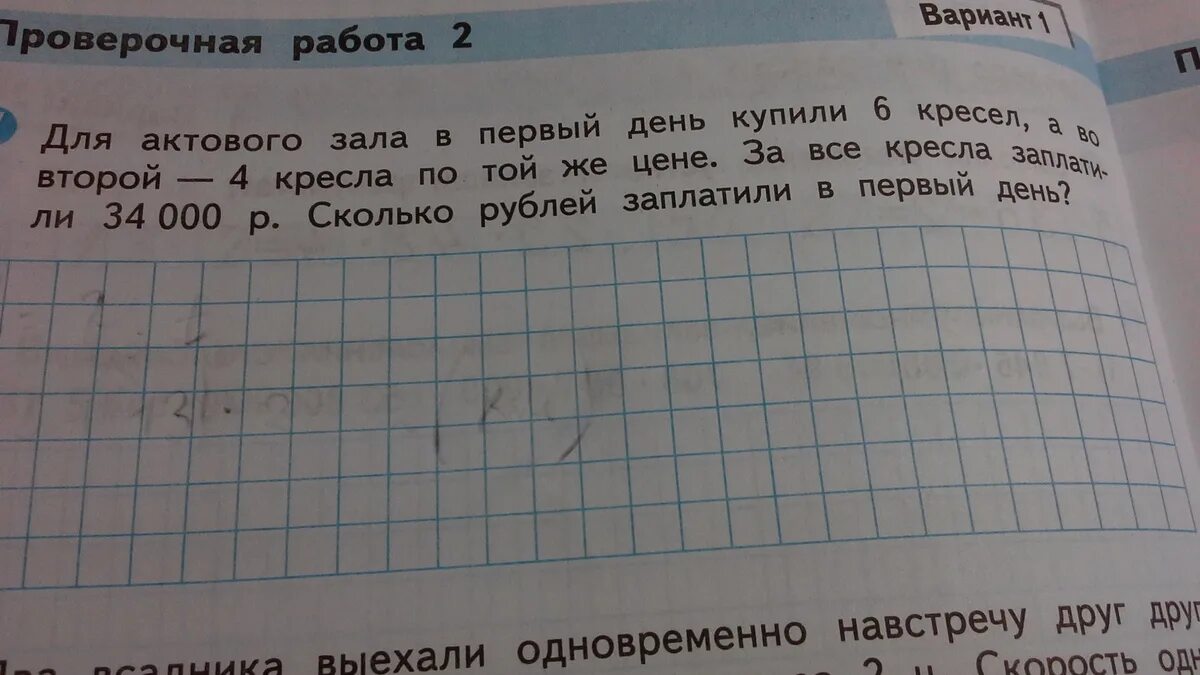 Проверочная работа 2
Вариант 1
Для актового зала в первый день купили 6 кресел, а во
второй — 4 кресла по той же цене. За все кресла заплати-
ли 34 000 р. Сколько рублей заплатили в первый день?
всадника выехали одновременно навстречу друг
2 ч. Скорость